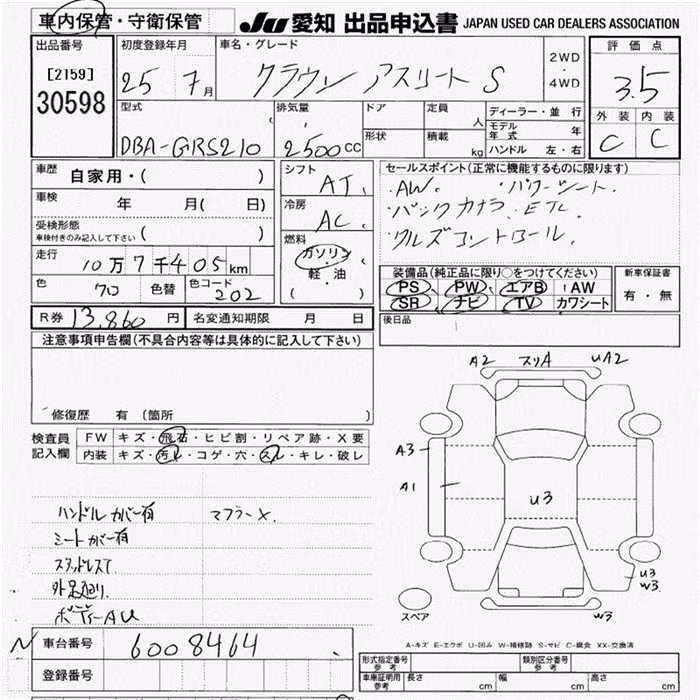 車内保管・守衛保管
JU 愛知 出品申込書 JAPAN USED CAR DEALERS ASSOCIATION
出品番号
[2159]
30598
初度登録年月
25 7月
車名・グレード
クラウン アスリート S
2WD
・
4WD
評価点
3.5
外装 内装
C C
型式
DBA-GRS210
排気量
2500cc
ドア
形状
定員
人
積載
kg
ディーラー・並行
モデル年式 年
ハンドル 左・右
車歴
自家用・( )
車検
年 月( 日)
受検形態
車検付きのみ記入して下さい ( )
走行
10万7千405km
色
クロ
色替
色コード
202
シフト
AT
冷房
AC
燃料
ガソリン
軽・油
( )
セールスポイント(正常に機能するものに限ります)
・AW. ・パワーシート.
・バックカメラ. ETC.
・クルズコントロール.
装備品(純正品に限り○をつけてください)
PS PW エアB AW
SR ナビ TV カワシート
新車保証書
有・無
R券 13,860円 名変通知期限 月 日
後日品
注意事項申告欄(不具合内容等は具体的に記入して下さい)
修復歴 有 (箇所
検査員記入欄
FW キズ・飛石・ヒビ割・リペア跡・X要
内装 キズ・汚レ・コゲ・穴・スレ・キレ・破レ
ハンドルカバー有 マフラーX.
シートカバー有
スタッドレスT
外足廻リ.
ボディーAU
A2 スリA UA2
A3
A1
U3
U3
W3
W3
スペア
A-キズ E-エクボ U-凹み W-補修跡 S-サビ C-腐食 XX-交換済
車台番号
6008464
登録番号
形式指定番号 参考
類別区分番号 参考
車庫証明用 参考
長さ cm 幅 cm 高さ cm